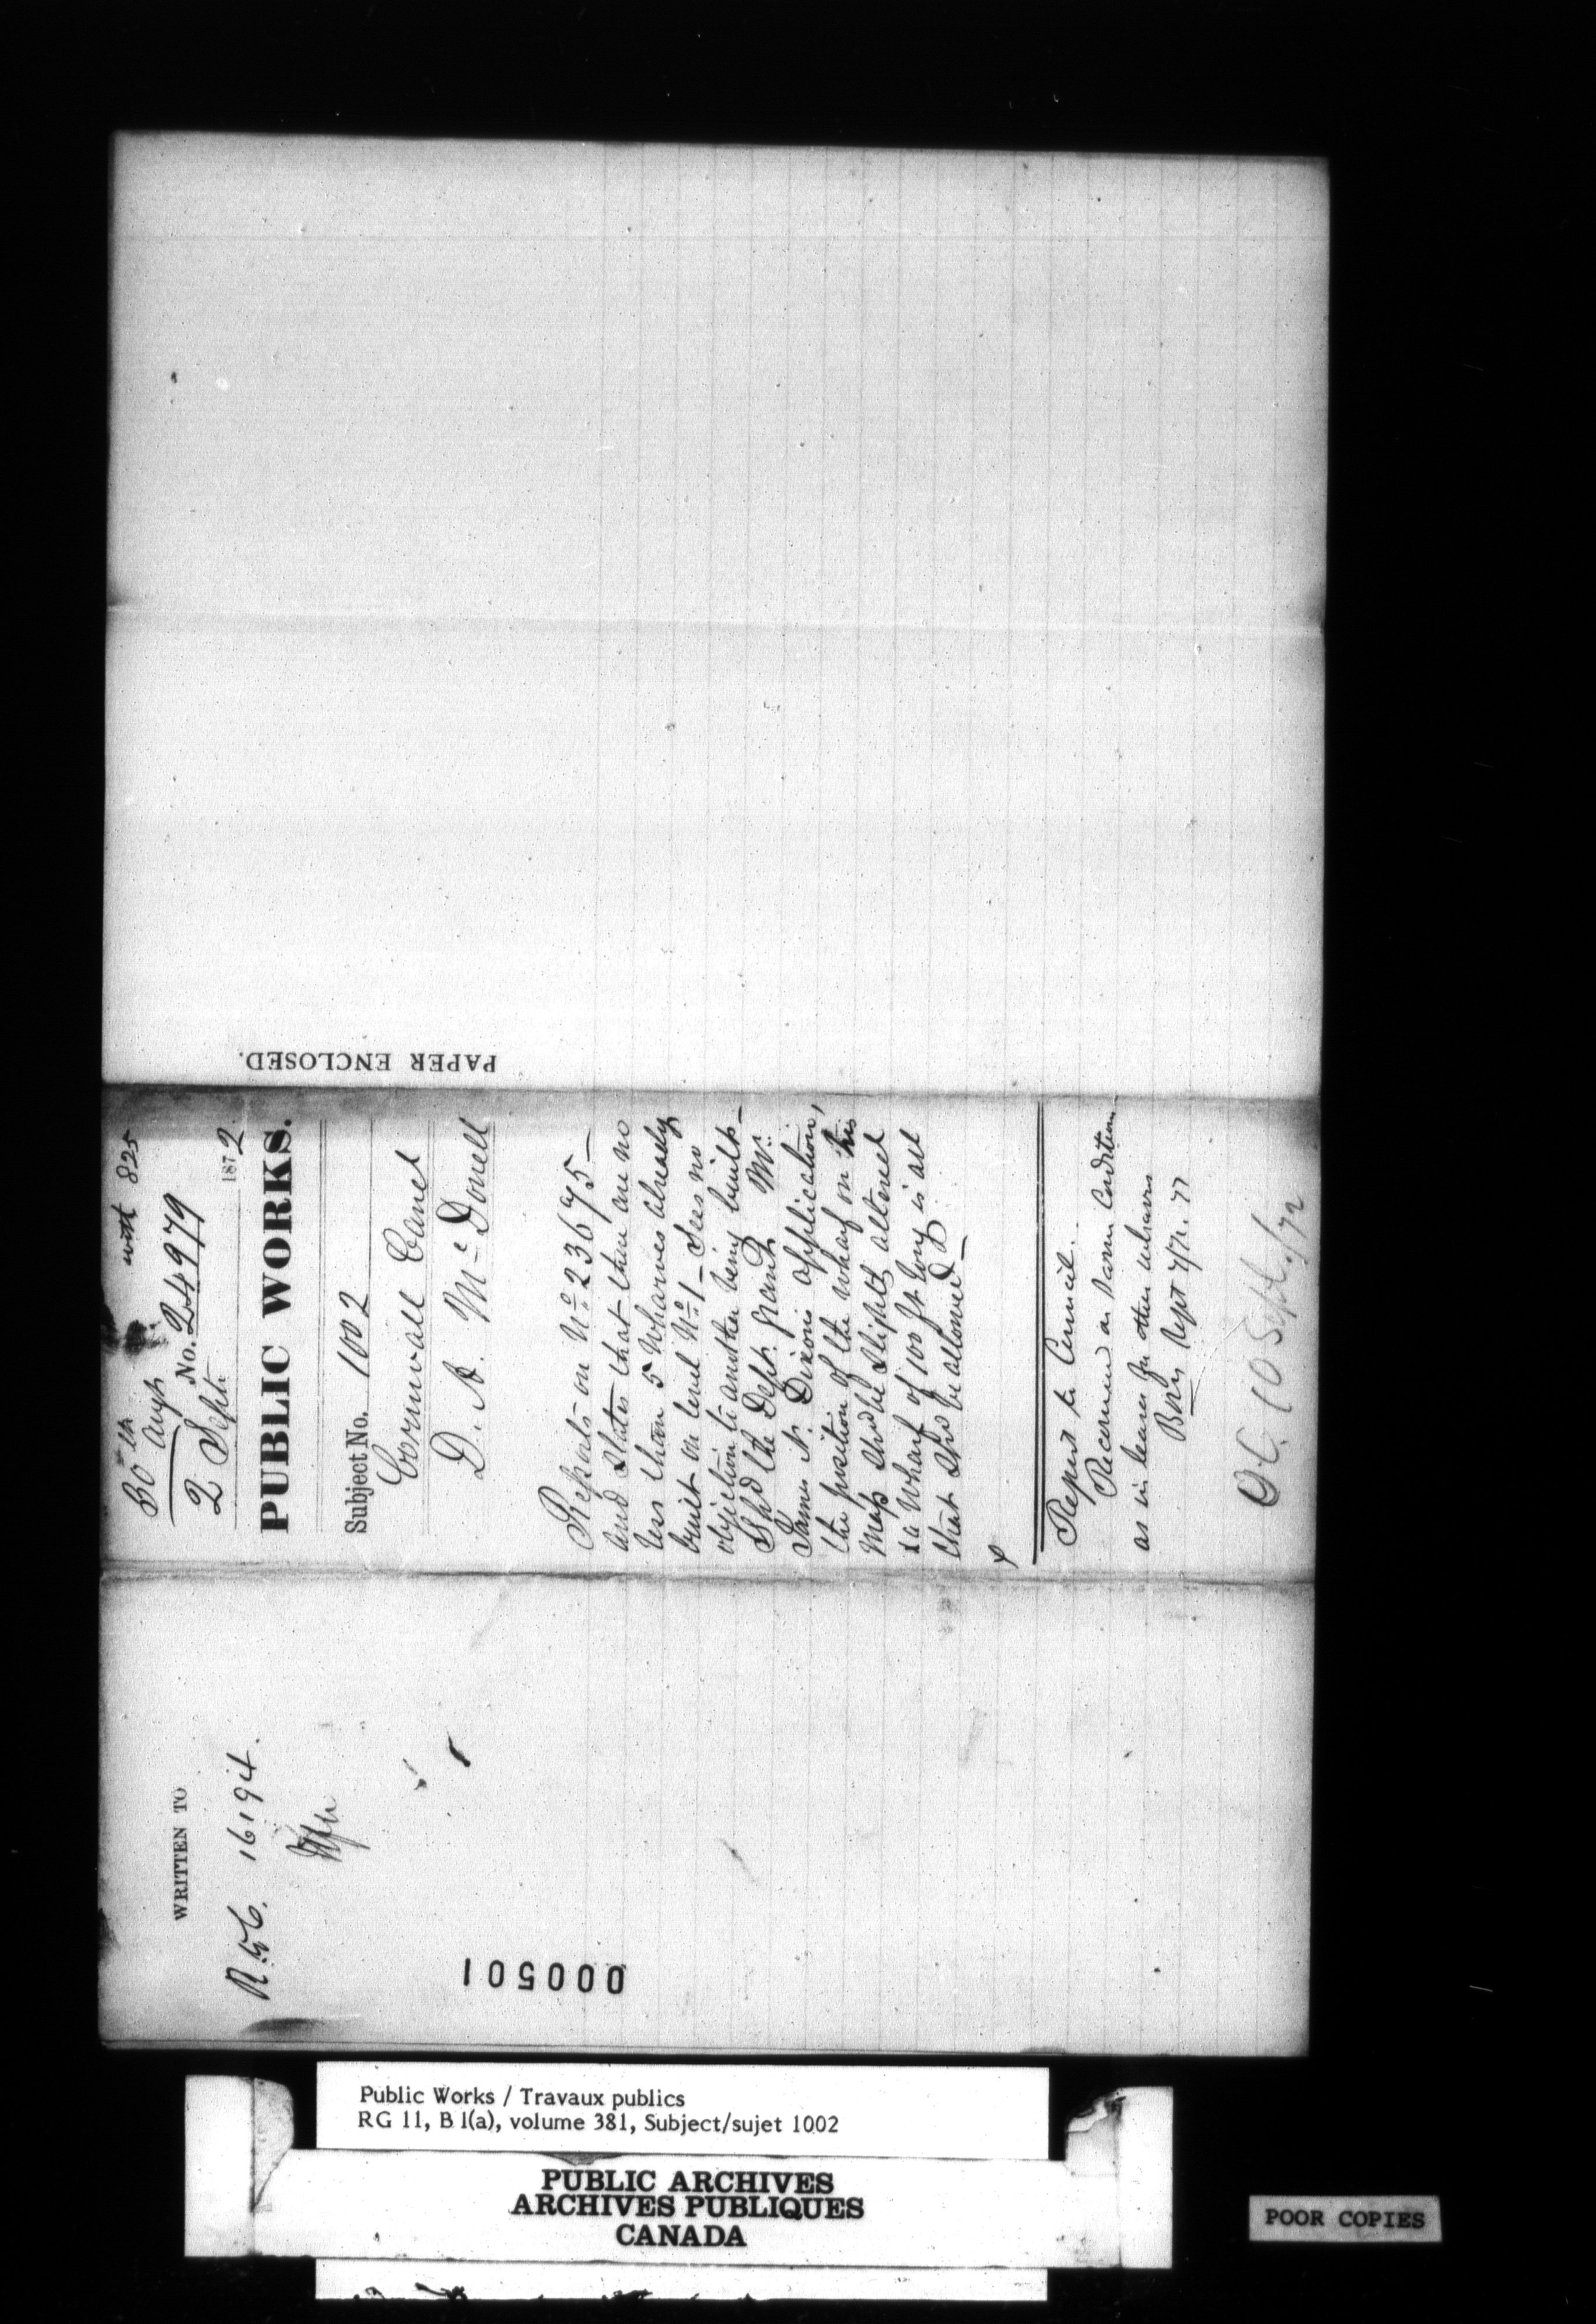 PAPER ENCLOSED.
with 825
30th Augt
No. 24979
2 Sept. 1872
PUBLIC WORKS.
Subject No. 1002
Cornwall Canal
D. A. McDonell
Reports on No 23675 —
and States that there are no
less than 5 Wharves already
built on level No 1 — Sees no
objection to another being built —
Shd the Dept. grant Mr.
James N. Dixons application,
the position of the wharf on his
map shd be slightly altered
& a Wharf of 100 ft long is all
that shd be allowed —
Report to Council.
Recommend on same Condition
as in leases for other wharves
Sept 4/72
O.C. 10 Sept./72
WRITTEN TO
16194.
000501
Public Works / Travaux publics
RG 11, B 1(a), volume 381, Subject/sujet 1002
PUBLIC ARCHIVES
ARCHIVES PUBLIQUES
CANADA
POOR COPIES